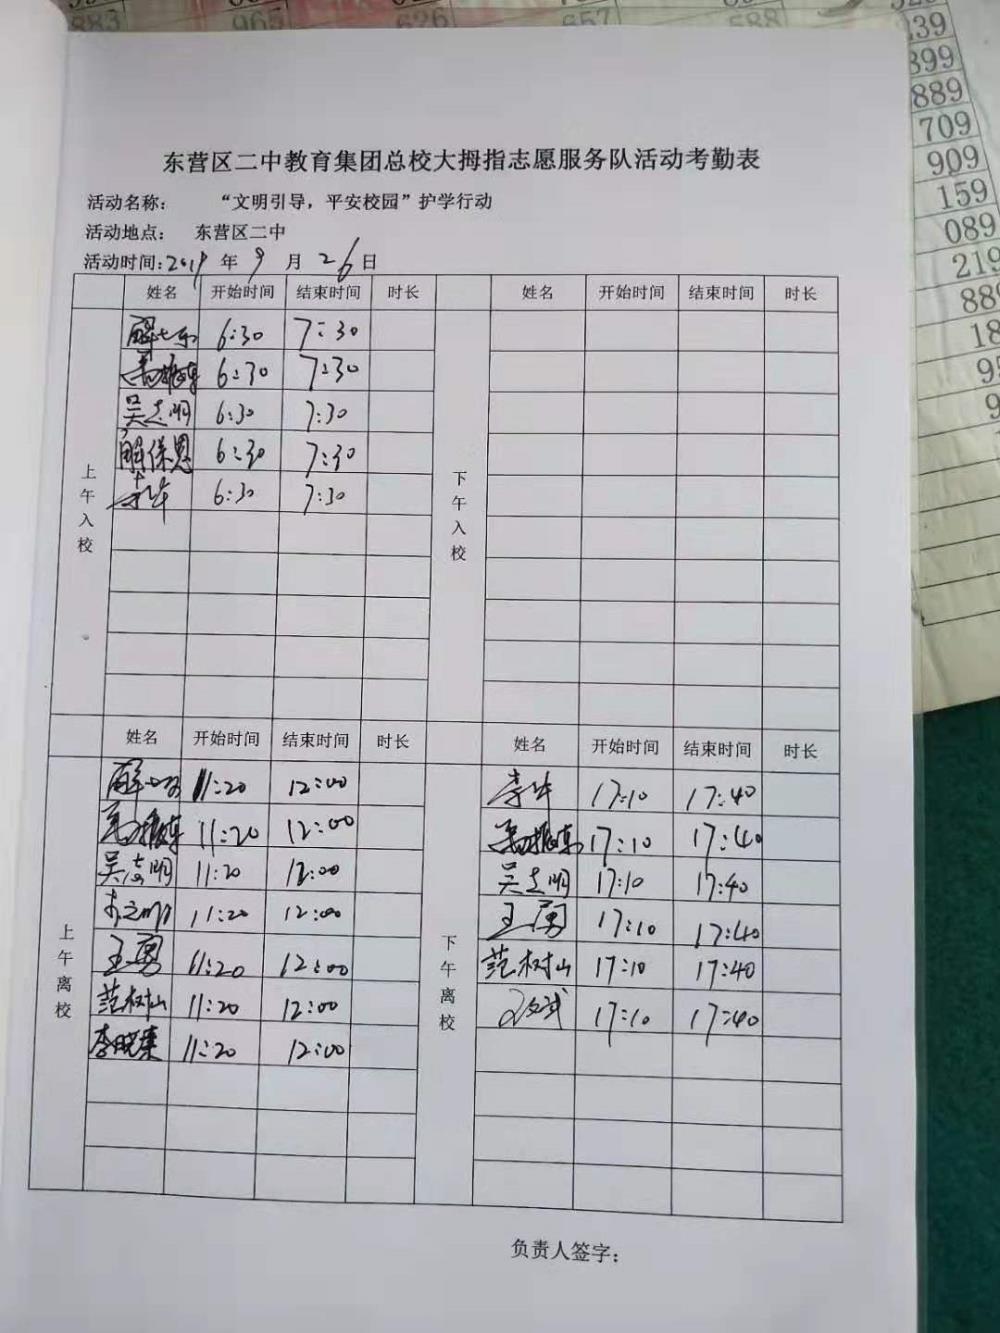 东营区二中教育集团总校大拇指志愿服务队活动考勤表
活动名称： “文明引导，平安校园”护学行动
活动地点： 东营区二中
活动时间:2019 年 9 月 26 日
姓名 开始时间 结束时间 时长 姓名 开始时间 结束时间 时长
上午入校
6:30 7:30
6:30 7:30
吴志明 6:30 7:30
解保恩 6:30 7:30
6:30 7:30
下午入校
姓名 开始时间 结束时间 时长 姓名 开始时间 结束时间 时长
上午离校
11:20 12:00
11:20 12:00
吴志明 11:20 12:00
11:20 12:00
王勇 11:20 12:00
范树山 11:20 12:00
李晓集 11:20 12:00
下午离校
17:10 17:40
17:10 17:40
吴志明 17:10 17:40
王勇 17:10 17:40
范树山 17:10 17:40
17:10 17:40
负责人签字：
883 965 626 657 588
239
899
889
709
909
159
089
219